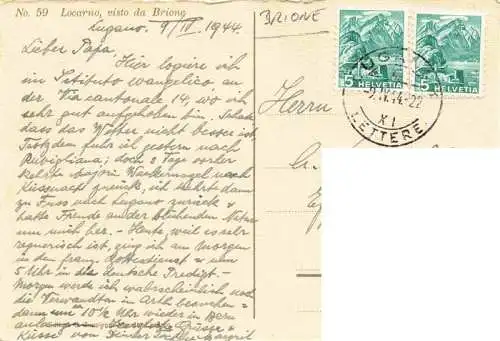 No. 59 Locarno, visto da Brione
BRIONE
Lugano. 9/IV. 1944.
Lieber Papa,
Hier logiere ich
im Istituto evangelico an
der Via cantonale 14, wo ich
sehr gut aufgehoben bin. Schade
dass das Wetter nicht besser ist
Trotzdem fuhr ich gestern nach
doch 2 Tage vorher
kehrte nach
Küssnacht zurück, ich kehrte dann
zu Fuss nach Lugano zurück &
hatte Freude an der blühenden Natur
um mich her. - Heute, weil es sehr
regnerisch ist, ging ich am Morgen
in den franz. Gottesdienst & um
5 Uhr in die deutsche Predigt. -
Morgen werde ich wahrscheinlich noch
die Verwandten in Arth besuchen &
dann um 10½ Uhr wieder in Bern
Grüsse &
Küsse von
Herrn
5 HELVETIA
5 HELVETIA
LETTERE
XI